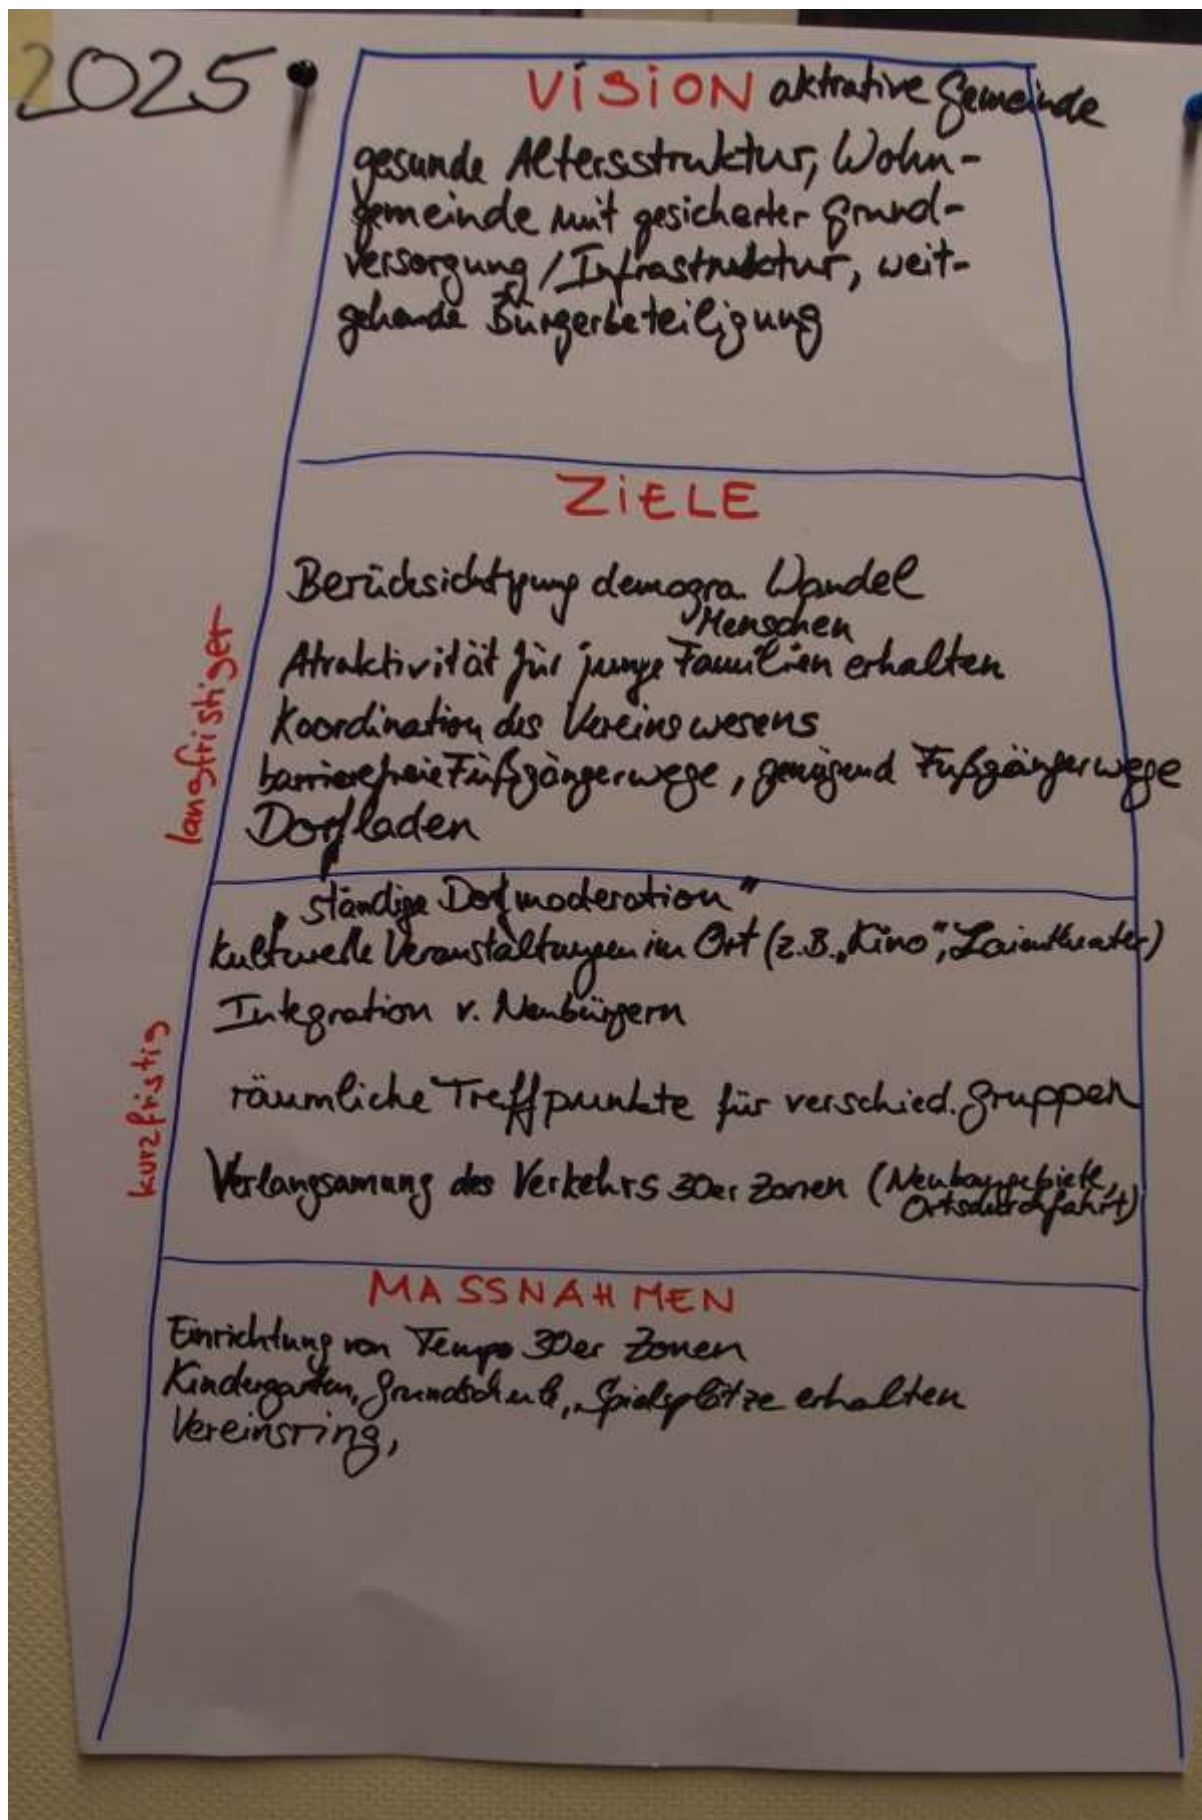 2025
VISION aktrative Gemeinde
gesunde Altersstruktur, Wohn-
gemeinde mit gesicherter Grund-
versorgung / Infrastruktur, weit-
gehende Bürgerbeteiligung
ZIELE
Berücksichtigung demogra. Wandel
Menschen
Atraktivität für junge Familien erhalten
Koordination des Vereinswesens
barrierefreie Fußgängerwege, genügend Fußgängerwege
Dorfladen
langfristiger
„ständige Dorfmoderation"
kulturelle Veranstaltungen im Ort (z.B. „Kino", Laientheater)
Integration v. Neubürgern
räumliche Treffpunkte für verschied. Gruppen
Verlangsamung des Verkehrs 30er Zonen (Neubaugebiete,
Ortsdurchfahrt)
kurzfristig
MASSNAHMEN
Einrichtung von Tempo 30er Zonen
Kindergarten, Grundschule, Spielsplätze erhalten
Vereinsring,